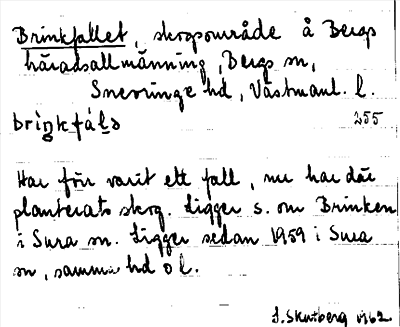 Brinkfallet, skogsområde å Bergs
häradsallmänning, Bergs sn,
Snevringe hd, Västmanl. l.
brìŋkfáls
255
Har förr varit ett fall, nu har där
planterats skog. Ligger s. om Brinken
i Sura sn. Ligger sedan 1959 i Sura
sn, samma hd o l.
S. Skutberg 1962.